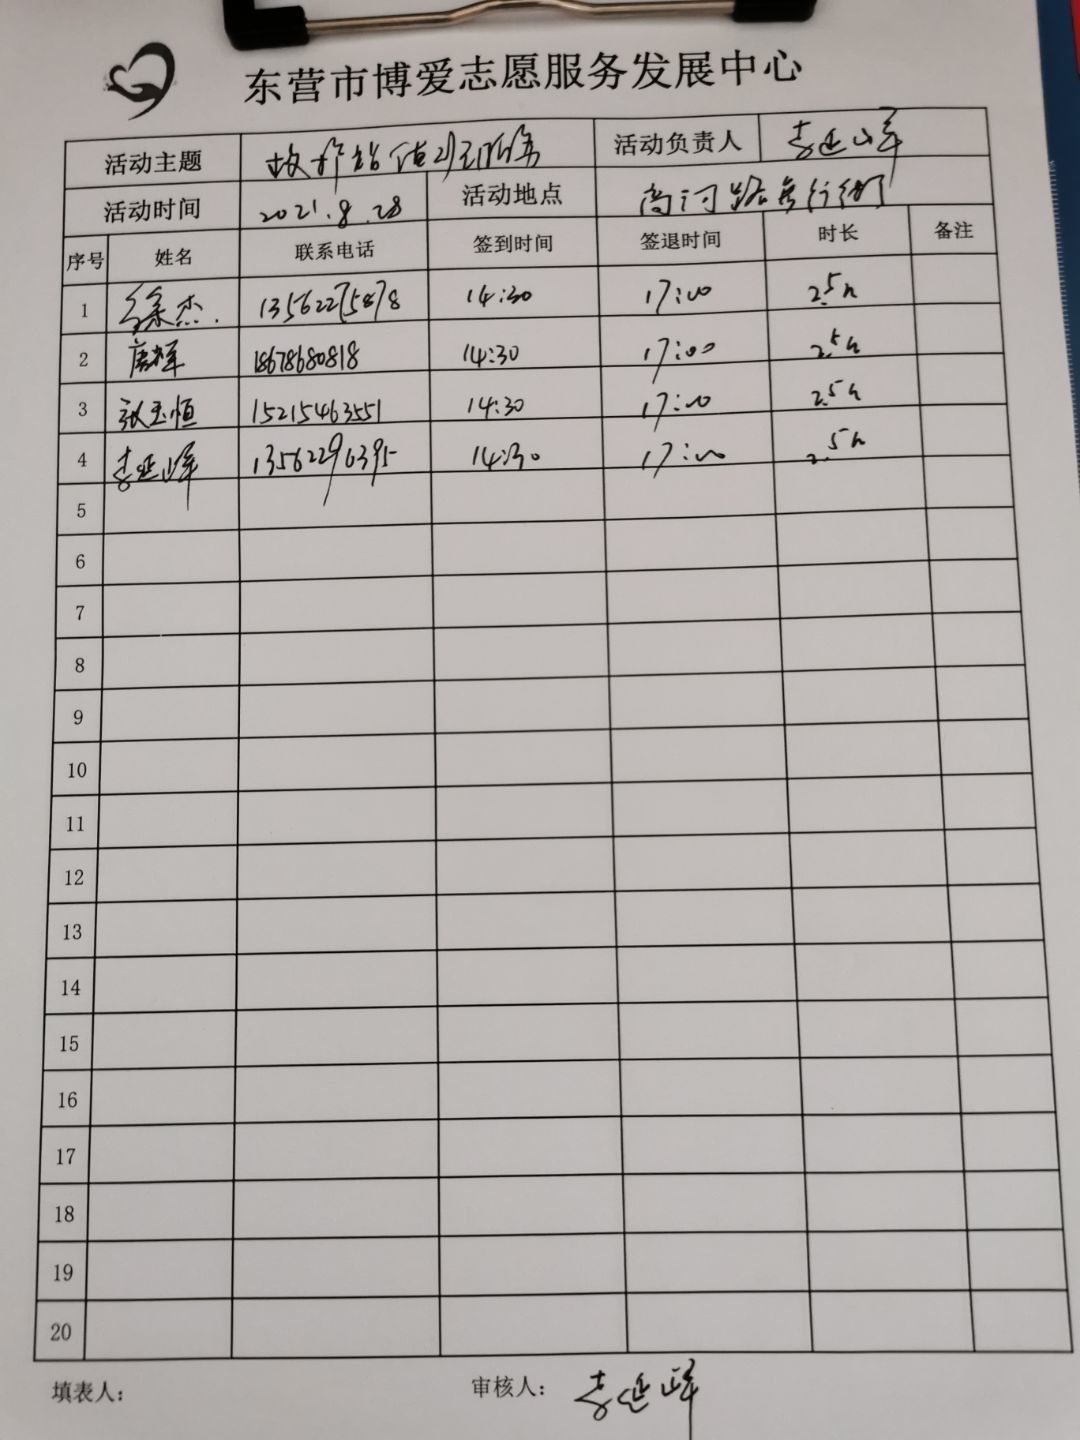 东营市博爱志愿服务发展中心
活动主题 活动负责人 李延峰
活动时间 2021.8.28 活动地点 商河路步行街
序号 姓名 联系电话 签到时间 签退时间 时长 备注
1 徐杰 14:30 17:00 2.5h
2 唐辉 18678680818 14:30 17:00 2.5h
3 张玉恒 15215463551 14:30 17:00 2.5h
4 李延峰 13562296395 14:30 17:00 2.5h
5
6
7
8
9
10
11
12
13
14
15
16
17
18
19
20
填表人： 审核人： 李延峰